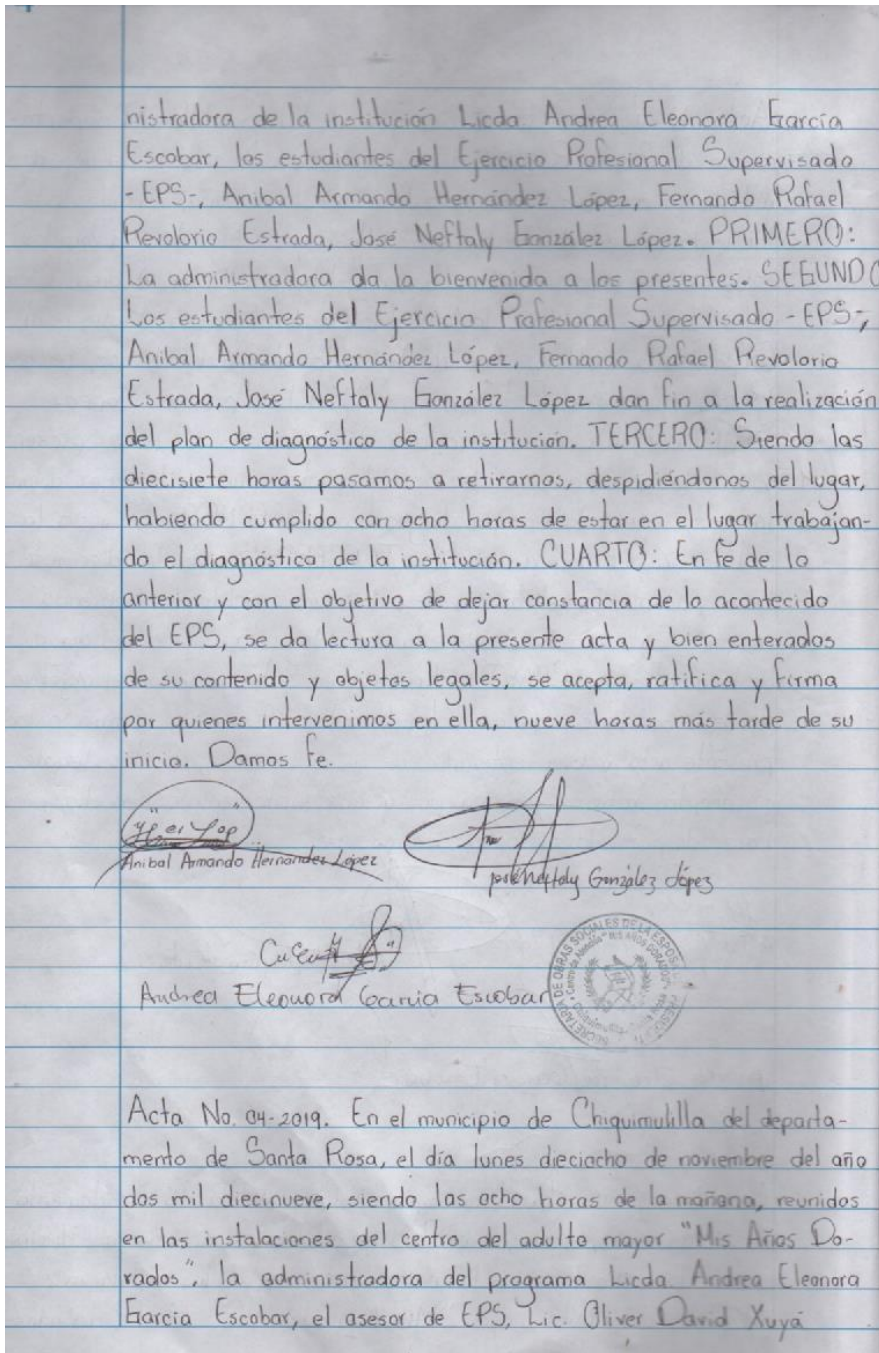 nistradora de la institución Licda Andrea Eleonora García
Escobar, los estudiantes del Ejercicio Profesional Supervisado
-EPS-, Anibal Armando Hernández López, Fernando Rafael
Revolorio Estrada, José Neftaly González López. PRIMERO:
La administradora da la bienvenida a los presentes. SEGUNDO
Los estudiantes del Ejercicio Profesional Supervisado -EPS-,
Anibal Armando Hernández López, Fernando Rafael Revolorio
Estrada, José Neftaly González López dan fin a la realización
del plan de diagnóstico de la institución. TERCERO: Siendo las
diecisiete horas pasamos a retirarnos, despidiéndonos del lugar,
habiendo cumplido con ocho horas de estar en el lugar trabajan-
do el diagnóstico de la institución. CUARTO: En fe de lo
anterior y con el objetivo de dejar constancia de lo acontecido
del EPS, se da lectura a la presente acta y bien enterados
de su contenido y objetos legales, se acepta, ratifica y firma
por quienes intervenimos en ella, nueve horas más tarde de su
inicio. Damos fe.
Anibal Armando Hernández López
José Neftaly González López
Andrea Eleonora García Escobar
SECRETARIA DE OBRAS SOCIALES DE LA ESPOSA
Acta No. 04-2019. En el municipio de Chiquimulilla del departa-
mento de Santa Rosa, el día lunes dieciocho de noviembre del año
dos mil diecinueve, siendo las ocho horas de la mañana, reunidos
en las instalaciones del centro del adulto mayor "Mis Años Do-
rados", la administradora del programa Licda Andrea Eleonora
García Escobar, el asesor de EPS, Lic. Oliver David Xuyá